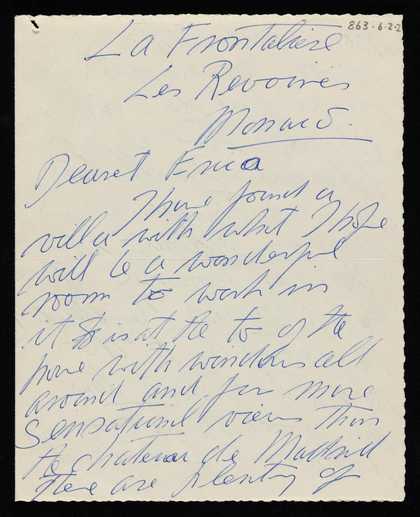 863-6-2-2
La Frontalière
Les Revoires
Monaco.
Dearest Erica
I have found a
villa with what I hope
will be a wonderful
room to work in
it is at the to of the
house with windows all
around and far more
sensational views than
the chateau de Madrid
there are plenty of